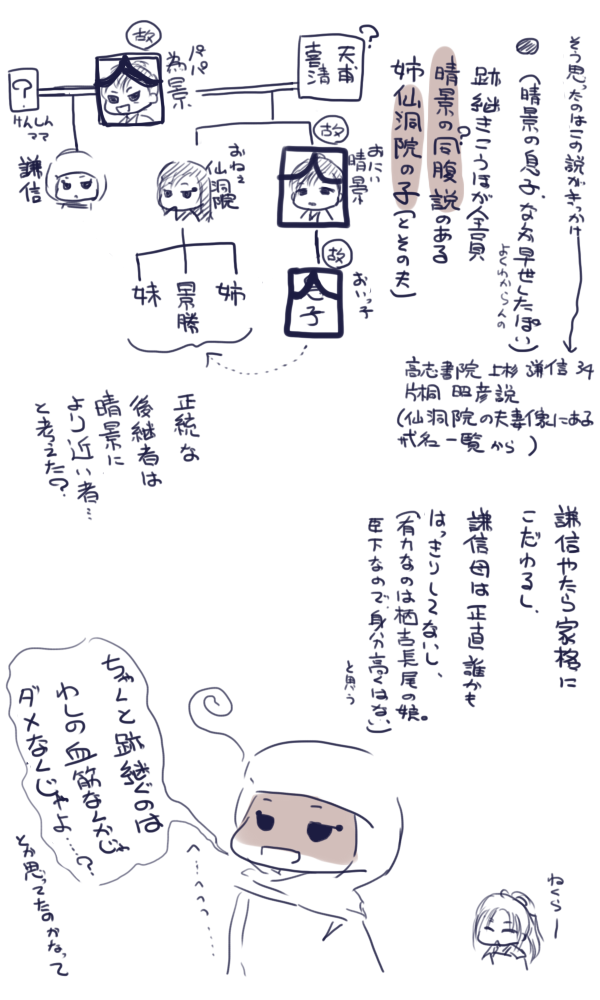 そう思ったのはこの説がきっかけ
(晴景の息子、なんか早世したぽい)
よくわからんの
跡継ぎこうほが全員
晴景の同腹説のある
?
姉仙洞院の子(とその夫)
?
天甫
喜清
故
パパ
為景
?
けんしん
ママ
謙信
おねえ
仙洞院
故
おにい
晴景
故
おいっ子
息子
姉
景勝
妹
高志書院 上杉謙信 34
片桐昭彦説
(仙洞院の夫妻像にある
戒名一覧から)
正統な
後継者は
晴景に
より近い者…
と考えた?
謙信やたら家格に
こだわるし、
謙信母は正直誰かも
はっきりしてないし、
(有力なのは栖吉長尾の娘。
臣下なので身分高くはない)
と思う
ちゃんと跡継ぐのは
わしの血筋なんかじゃ
ダメなんじゃよ……?
へっへっへっ……
とか思ってたのかなって
ねくらー